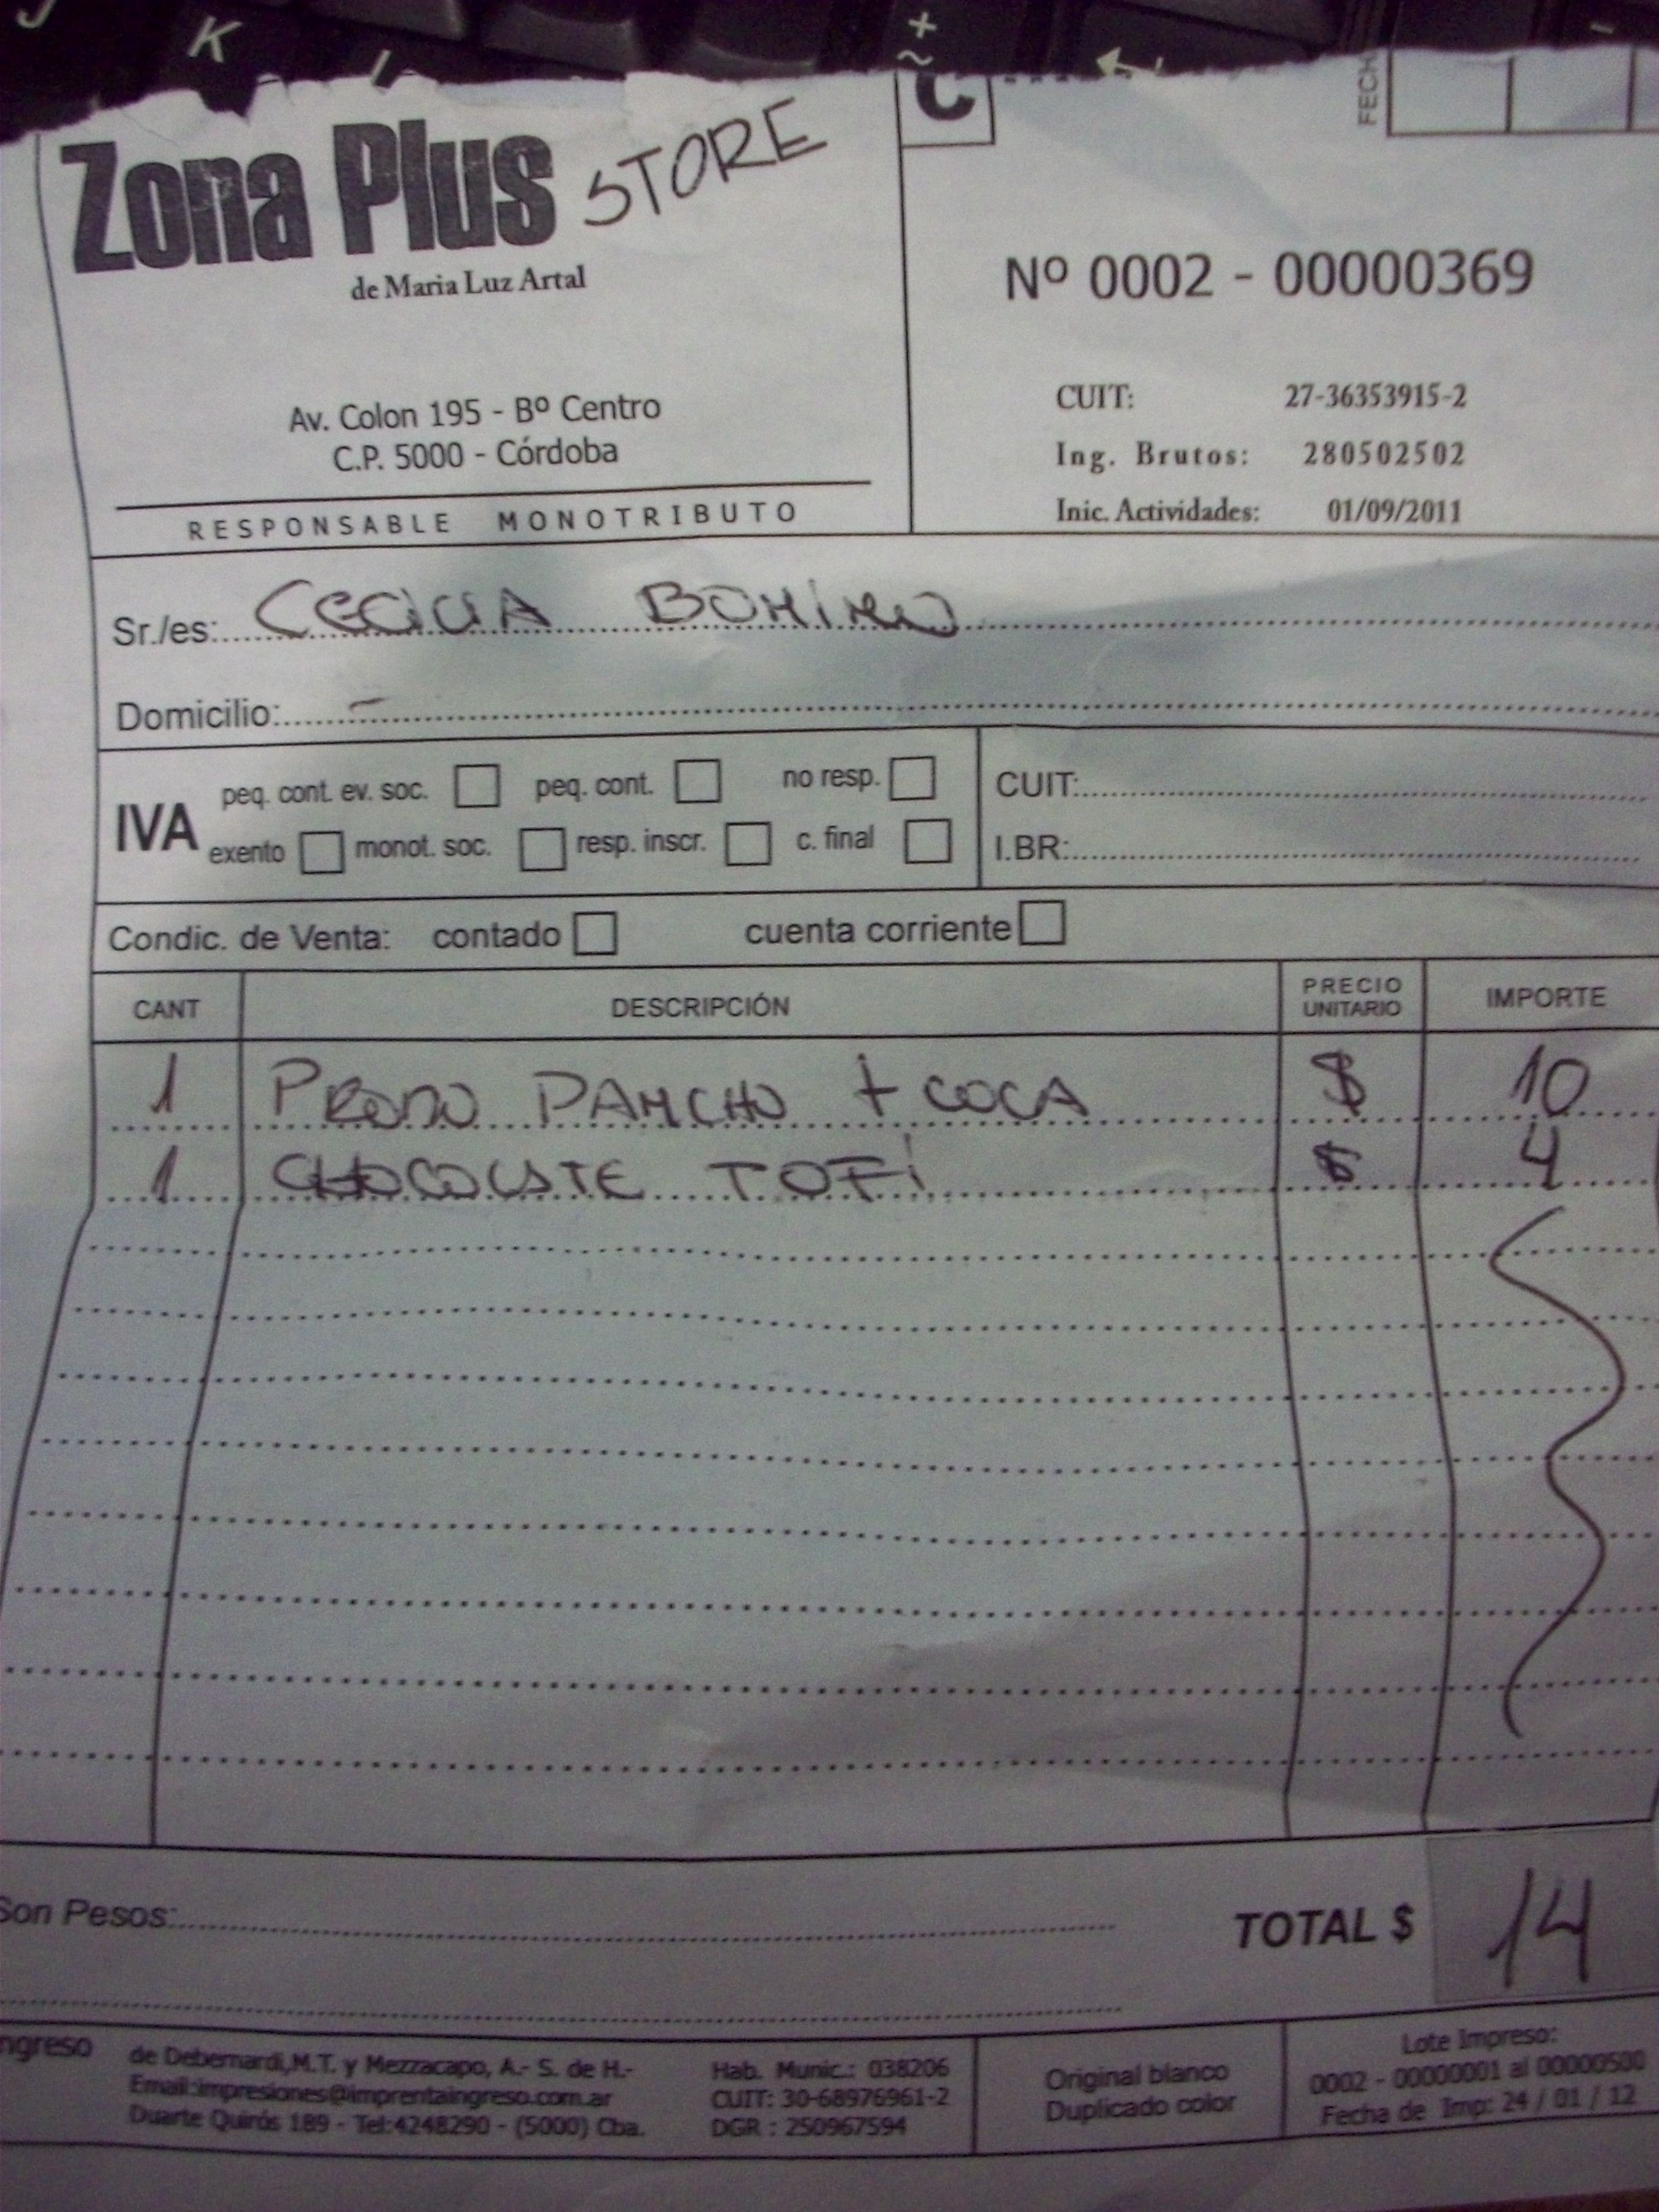 J K L + ~
Zona Plus STORE
de Maria Luz Artal
Av. Colon 195 - Bº Centro
C.P. 5000 - Córdoba
RESPONSABLE MONOTRIBUTO
C
FECH
Nº 0002 - 00000369
CUIT: 27-36353915-2
Ing. Brutos: 280502502
Inic. Actividades: 01/09/2011
Sr./es: CECILIA
Domicilio: -
IVA peq. cont. ev. soc. peq. cont. no resp.
exento monot. soc. resp. inscr. c. final
CUIT:
I.BR:
Condic. de Venta: contado cuenta corriente
CANT DESCRIPCIÓN PRECIO UNITARIO IMPORTE
1 PROMO PANCHO + COCA $ 10
1 CHOCOLATE TOFI $ 4
Son Pesos:
TOTAL $ 14
ngreso
de Debernardi,M.T. y Mezzacapo, A.- S. de H.-
Email:impresiones@imprentaingreso.com.ar
Duarte Quirós 189 - Tel:4248290 - (5000) Cba.
Hab. Munic.: 038206
CUIT: 30-68976961-2
DGR : 250967594
Original blanco
Duplicado color
Lote Impreso:
0002 - 00000001 al 00000500
Fecha de Imp: 24 / 01 / 12